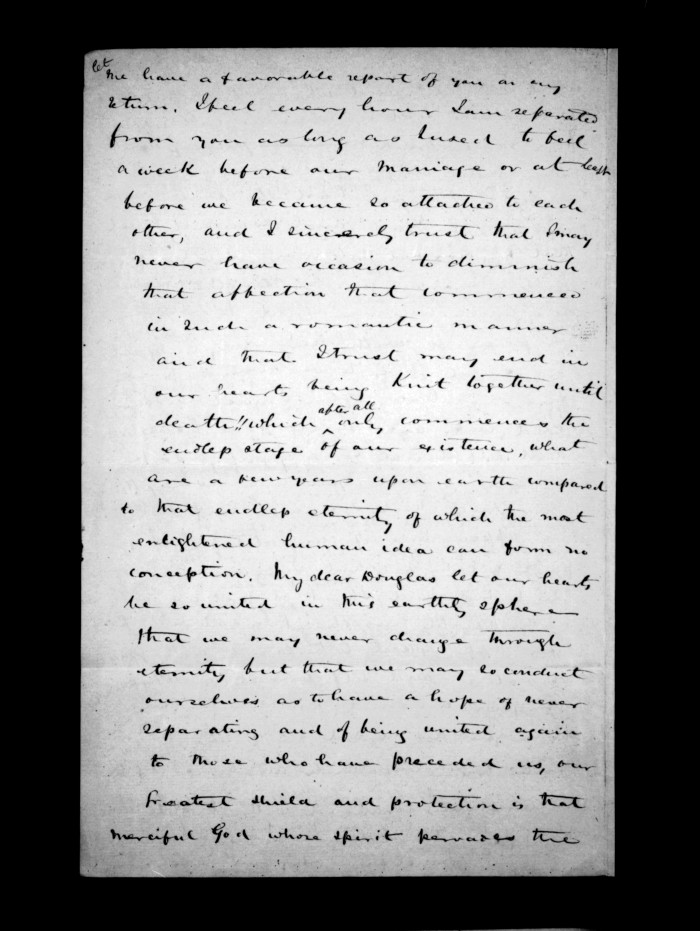 let
me have a favorable report of you on my
return. I feel every hour I am separated
from you as long as I used to feel
a week before our marriage or at least
before we became so attached to each
other, and I sincerely trust that I may
never have occasion to diminish
that affection that commenced
in such a romantic manner
and that I trust may end in
our hearts being Knit together until
death!! which after all only commences the
endless stage of our existence, what
are a few years upon earth compared
to that endless eternity of which the most
enlightened human idea can form no
conception. My dear Douglas let our hearts
be so united in this earthly sphere
that we may never change through
eternity but that we may so conduct
ourselves as to have a hope of never
separating and of being united again
to those who have preceded us, our
Greatest shield and protection is that
merciful God whose spirit pervades the